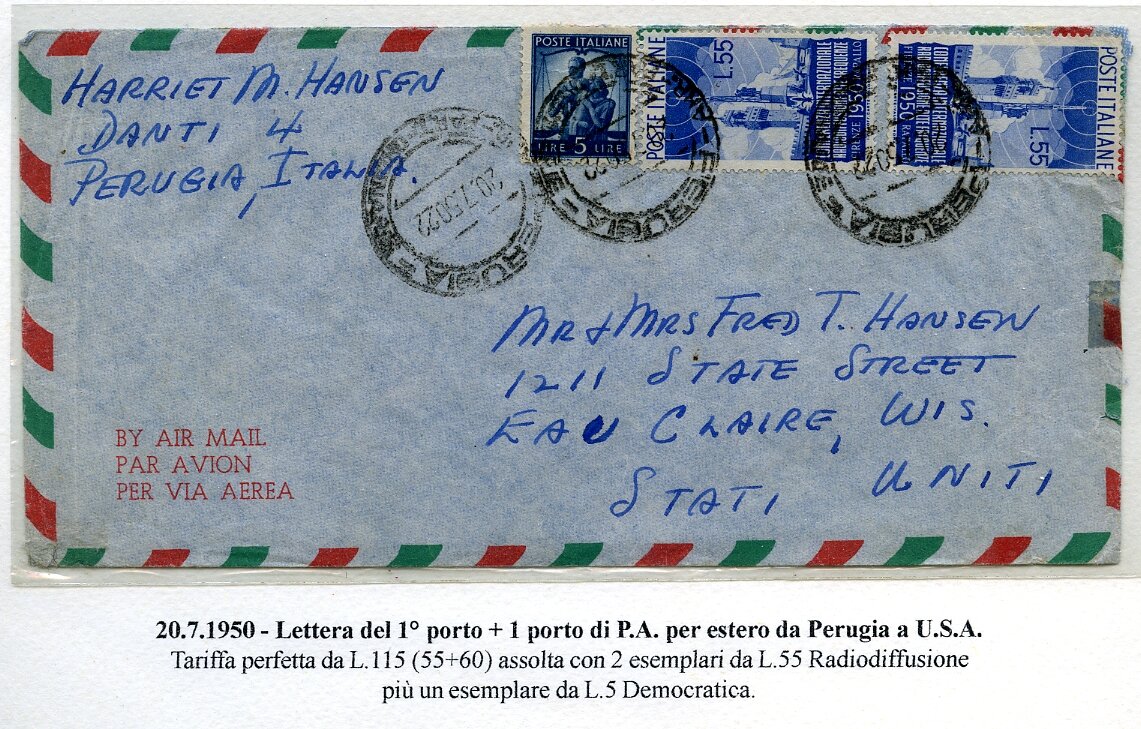 HARRIET M. HANSEN
DANTI 4
PERUGIA, ITALIA.
POSTE ITALIANE
LIRE 5 LIRE
POSTE ITALIANE
L.55
FIRENZE 1950 RAPALLO
POSTE ITALIANE
L.55
FIRENZE 1950
PERUGIA
20.7.50.22
PERUGIA
PERUGIA
MR & MRS FRED T. HANSEN
1211 STATE STREET
EAU CLAIRE, WIS.
STATI UNITI
BY AIR MAIL
PAR AVION
PER VIA AEREA
20.7.1950 - Lettera del 1° porto + 1 porto di P.A. per estero da Perugia a U.S.A.
Tariffa perfetta da L.115 (55+60) assolta con 2 esemplari da L.55 Radiodiffusione
più un esemplare da L.5 Democratica.